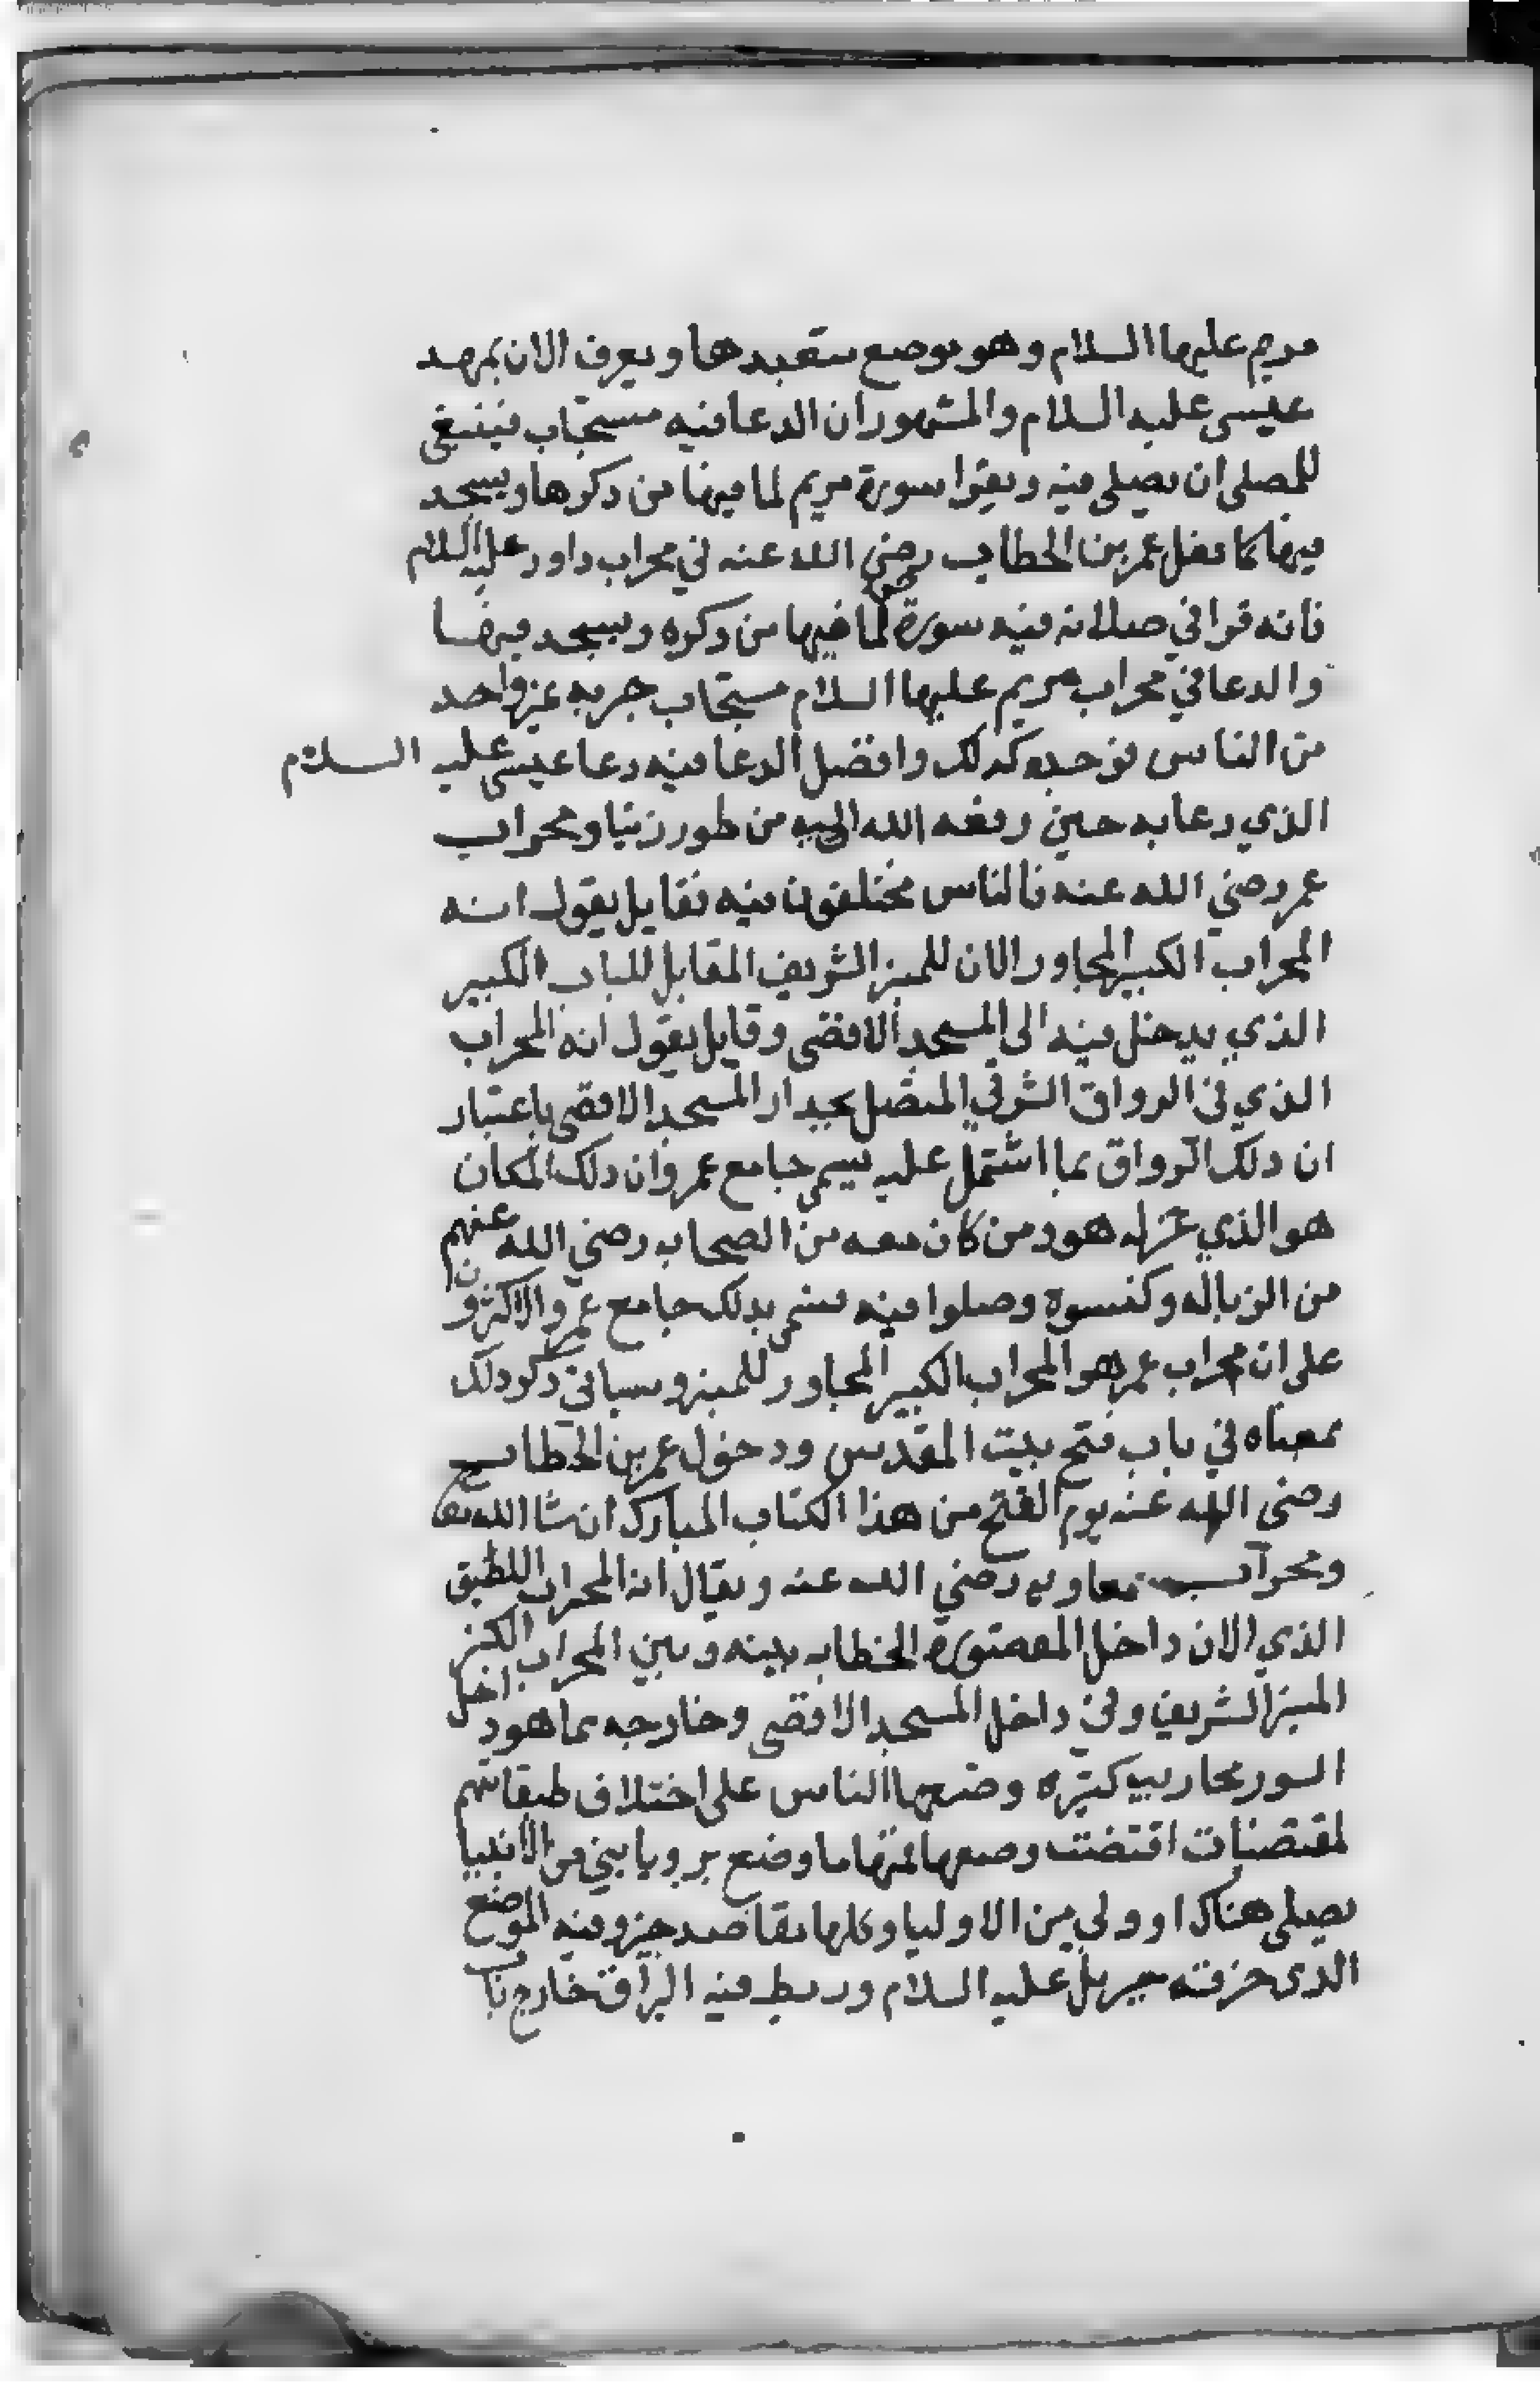 مريم عليها السلام وهو موضع متعبدها ويعرف الان بمهد
عيسى عليه السلام والمشهور ان الدعا فيه مستجاب فينبغي
للمصلي ان يصلي فيه ويقرا سورة مريم لما فيها من ذكرها ويسجد
فيها كما فعل عمر بن الخطاب رضي الله عنه في محراب داود عليه السلام
فانه قرا في صلاته فيه سورة ص لما فيها من ذكره ويسجد فيها
والدعا في محراب مريم عليها السلام مستجاب جربه غير واحد
من الناس فوجده كذلك وافضل الدعا فيه دعا عيسى عليه السلام
الذي دعا به حين رفعه الله اليه من طور زيتا ومحراب
عمر رضي الله عنه فالناس مختلفون فيه فقايل يقول انه
المحراب الكبير المجاور الان للمنبر الشريف المقابل للباب الكبير
الذي يدخل منه الى المسجد الاقصى وقايل يقول انه المحراب
الذي في الرواق الشرقي المتصل بجدار المسجد الاقصى باعتبار
ان ذلك الرواق بما اشتمل عليه يسمى جامع عمر وان ذلك المكان
هو الذي عزله هو ومن كان معه من الصحابه رضي الله عنهم
من الزباله وكنسوه وصلوا فيه فسمي بذلك جامع عمر والاكثرون
على ان محراب عمر هو المحراب الكبير المجاور للمنبر وسياتي ذكر ذلك
بمعناه في باب فتح بيت المقدس ودخول عمر بن الخطاب
رضي الله عنه يوم الفتح من هذا الكتاب المبارك ان شا الله تعالى
ومحراب معاويه رضي الله عنه ويقال انه المحراب اللطيق
الذي الان داخل المقصورة الخطابه بينه وبين المحراب الكبير
المنبر الشريف وفي داخل المسجد الاقصى وخارجه مما هو داخل
السور محاريب كثيره وضعها الناس على اختلاف طبقاتهم
لمقتضيات اقتضت وضعها فمنها ما وضع بر ويا بني من الانبيا
يصلي هناك او ولي من الاوليا وكلها مقاصد خير وفيه الموضع
الذي خرقته جبريل عليه السلام وربط فيه البراق خارج باب